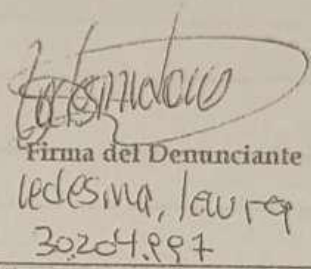 Firma del Denunciante
Ledesma, Laura
30.204.997